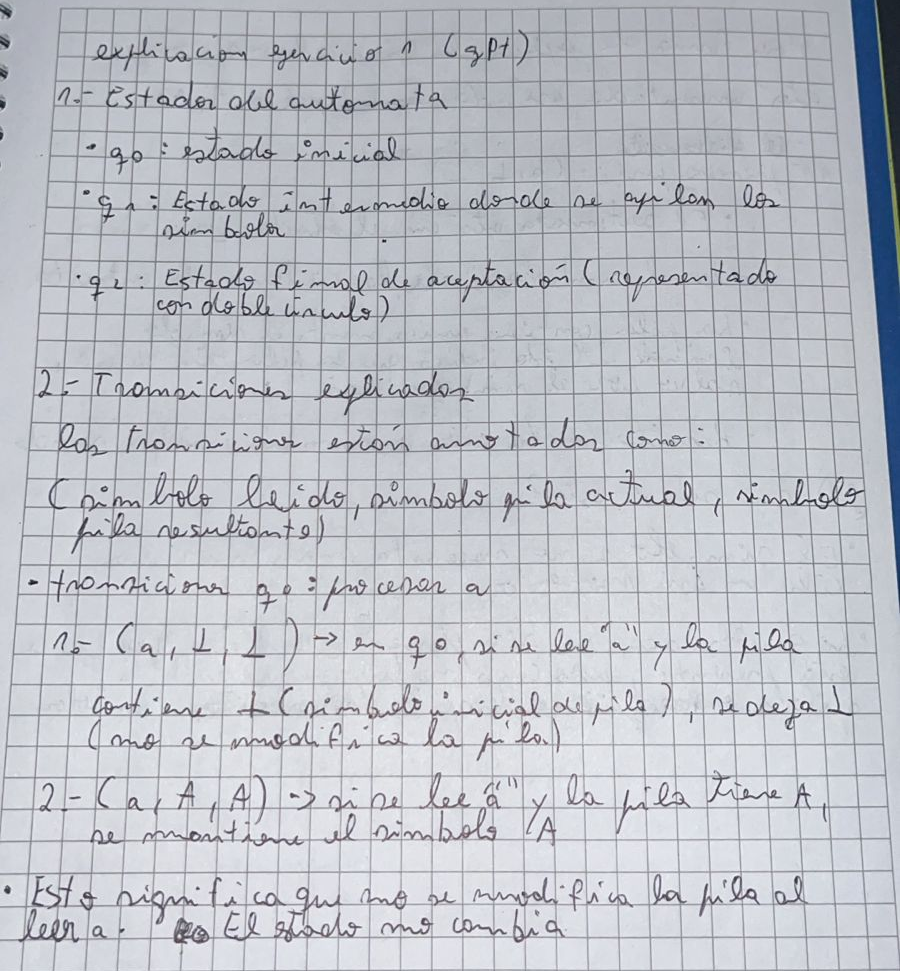 explicacion ejercicio 1 (gpt)
1.- Estados del automata
· q0 : estado inicial
· q1 : Estado intermedio donde se apilan los
simbolos
· q2 : Estado final de aceptación (representado
con doble circulo)
2.- Transiciones explicadas
las transiciones están anotadas como:
(simbolo leído, simbolo pila actual, simbolo
pila resultante)
- transiciones q0 : procesar a
1.- (a, ⊥, ⊥) → en q0, si se lee "a" y la pila
contiene ⊥ (simbolo inicial de pila), se deja ⊥
(no se modifica la pila)
2.- (a, A, A) → si se lee "a" y la pila tiene A,
se mantiene el simbolo A
· Esto significa que no se modifica la pila al
leer a. El estado no cambia